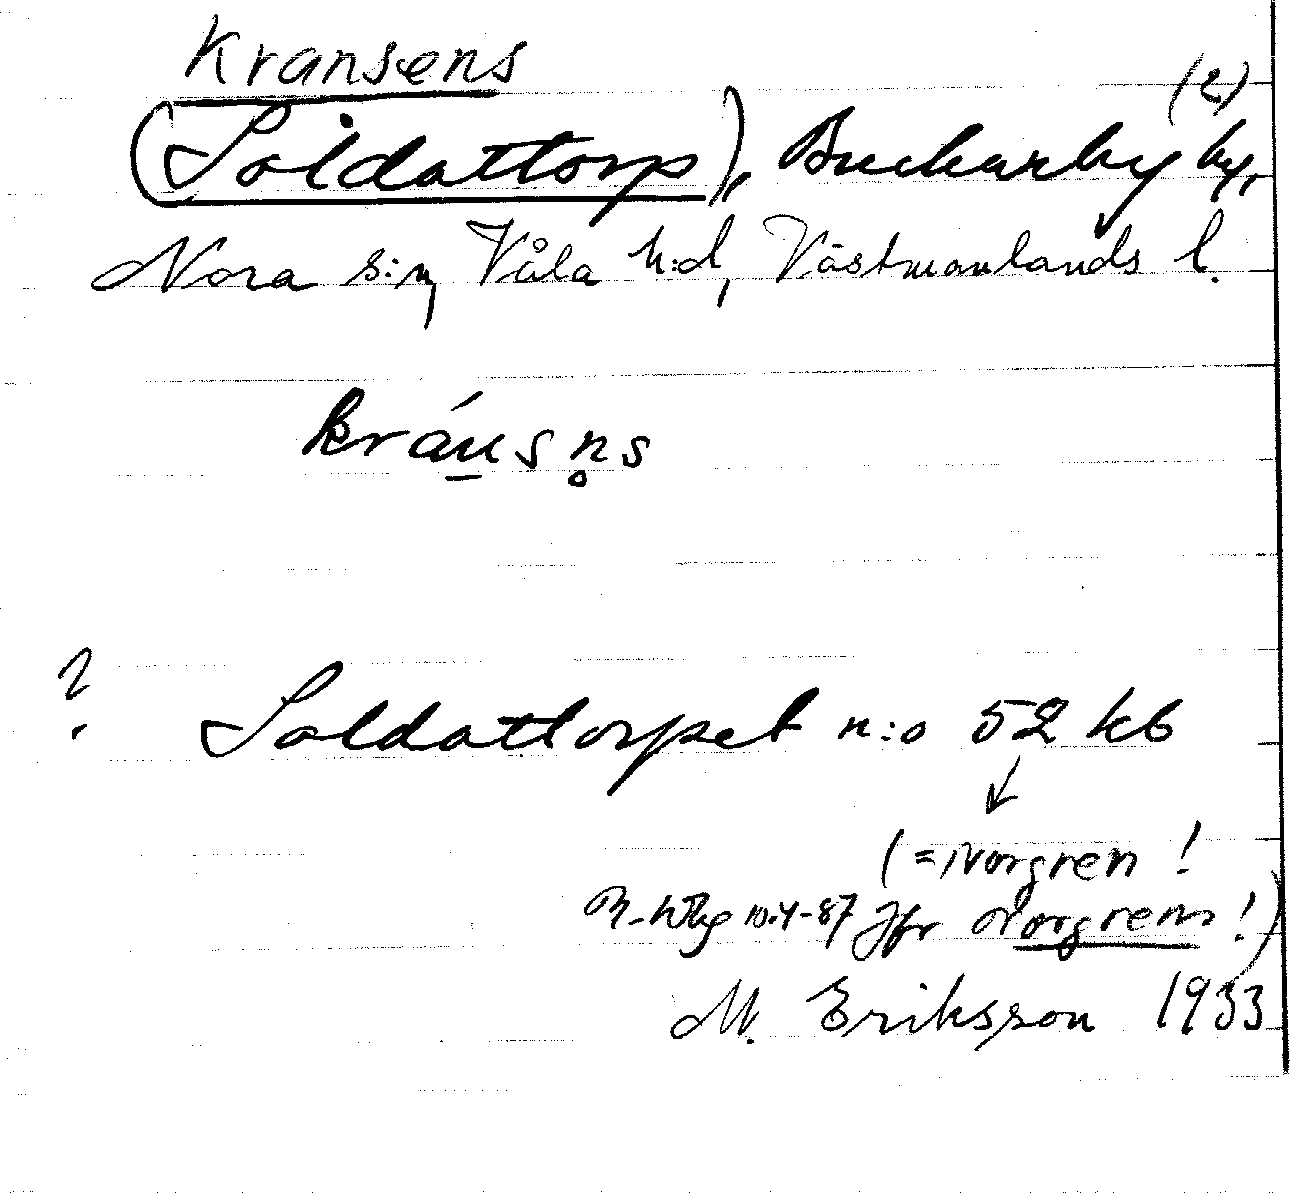 Kransens
(2)
(Soldattorp), Buckarby by,
Nora s:n, Våla h:d, Västmanlands l.
kránsn̥s
? Soldattorpet n:o 52 kb
↓
(=Norgren!
10.4-87 Jfr Norgren!)
M. Eriksson 1933